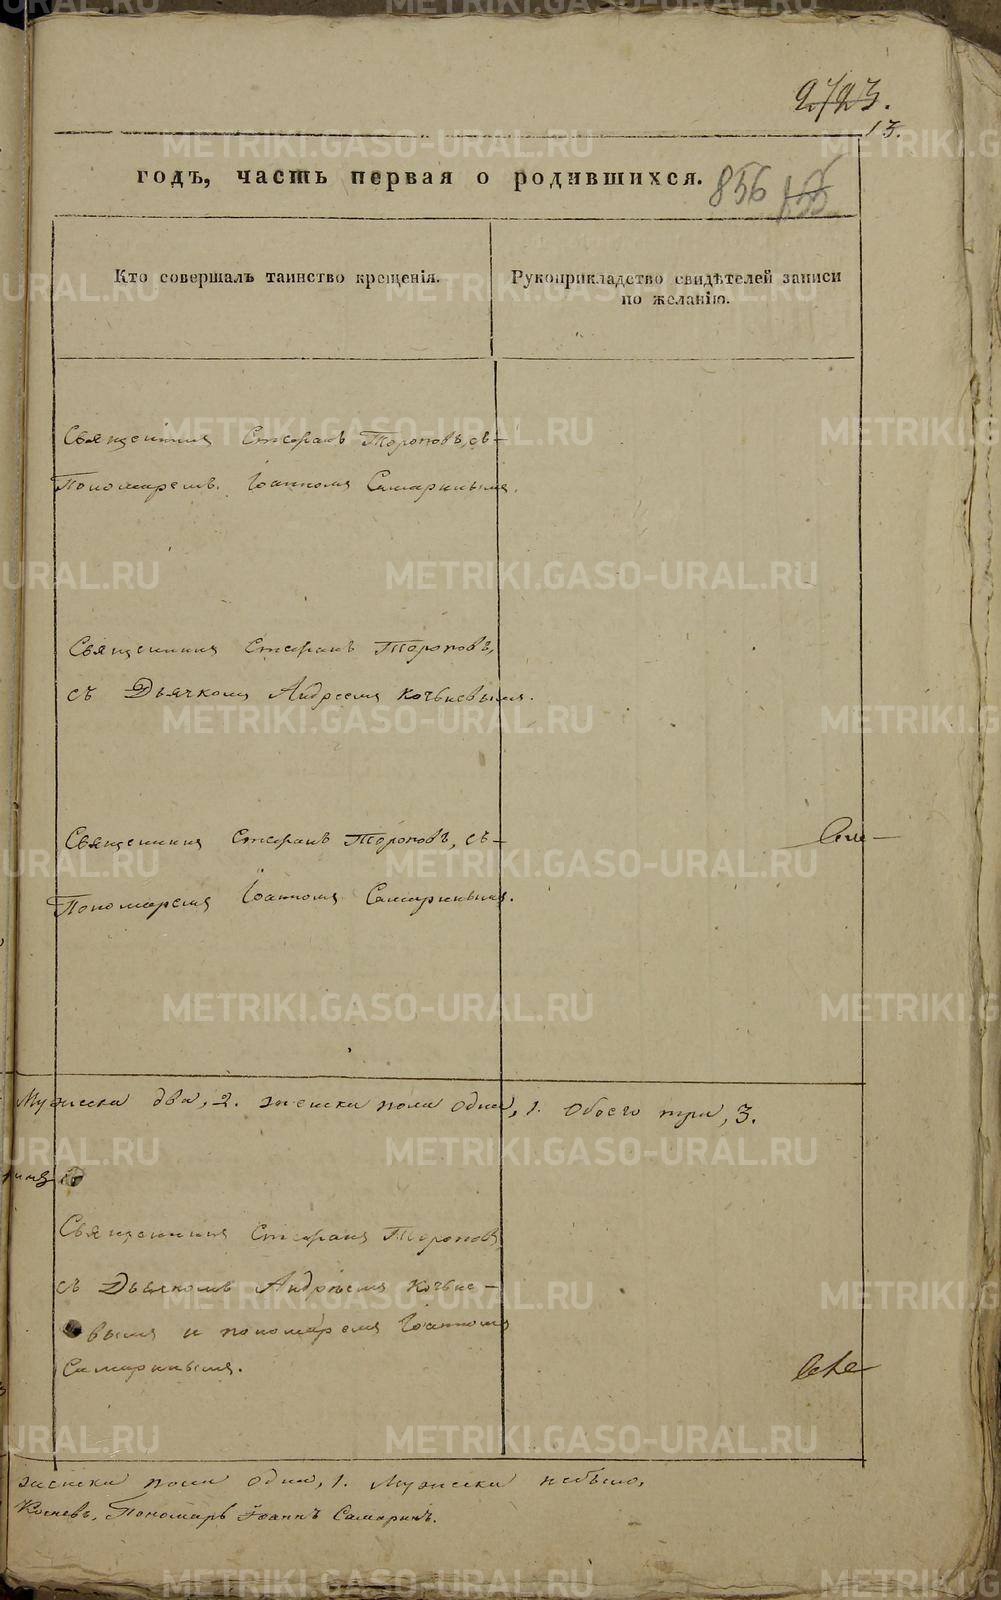 2723.
13.
годъ, часть первая о родившихся.
856
Кто совершалъ таинство крещенія.
Рукоприкладство свидѣтелей записи
по желанію.
Священникъ Стефанъ Тороповъ, съ
Пономаремъ Іоанномъ Самаринымъ.
Священникъ Стефанъ Тороповъ,
съ Дьячкомъ Андреемъ Кочневымъ.
Священникъ Стефанъ Тороповъ, съ
Пономаремъ Іоанномъ Самаринымъ.
Мужеска два, 2. женска пола одна, 1. Обоего три, 3.
Священникъ Стефанъ Тороповъ
съ Дьячкомъ Андреемъ Кочне-
вымъ и пономаремъ Іоанномъ
Самаринымъ.
женска пола одна, 1. Мужеска небыло,
Кочневъ, Пономарь Іоаннъ Самаринъ.
METRIKI.GASO-URAL.RU